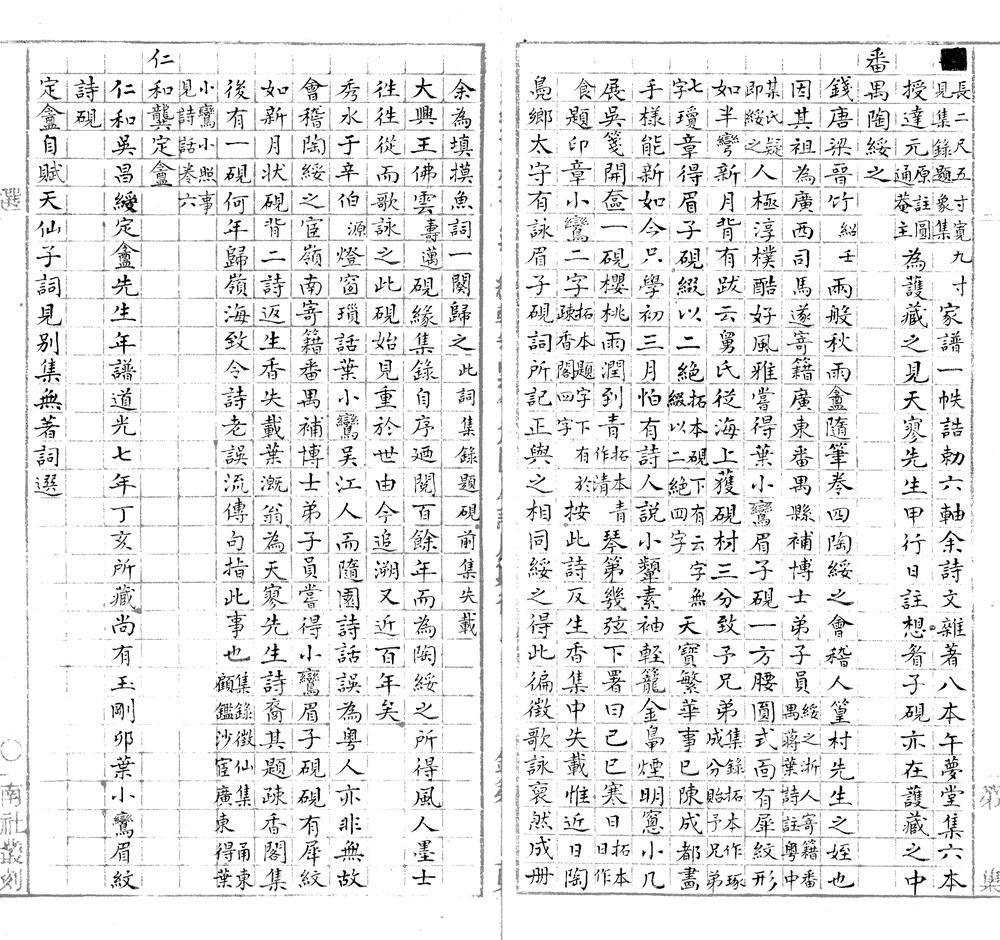 長二尺五寸寬九寸
見集錄題象集
家譜一帙誥勅六軸余詩文雜著八本午夢堂集六本
授達元原註圓通菴主為護藏之見天寥先生甲行日註想眉子硯亦在護藏之中
番禺陶綏之
錢唐梁晉竹紹壬兩般秋雨盦隨筆卷四陶綏之會稽人篁村先生之姪也
因其祖為廣西司馬遂寄籍廣東番禺縣補博士弟子員綏之浙人寄籍番禺蔣葉詩註粵中
某氏疑即綏之人極淳樸酷好風雅嘗得葉小鸞眉子硯一方腰圓式面有犀紋形
如半彎新月背有跋云舅氏從海上獲硯材三分致予兄弟集錄拓本作琢成分貽予兄弟
七字瓊章得眉子硯綴以二絕拓本硯下有云字無綴以二絕四字天寶繁華事已陳成都畫
手樣能新如今只學初三月怕有詩人說小顰素袖輕籠金鳧煙明窻小几
展吳箋開奩一硯櫻桃雨潤到青拓本青作清琴第幾弦下署曰己巳寒日拓本日作
食題印章小鸞二字拓本題字下有於疎香閣四字按此詩反生香集中失載惟近日陶
鳧鄉太字有詠眉子硯詞所記正與之相同綏之得此徧徵歌詠裒然成册
余為填摸魚詞一闋歸之此詞集錄題硯前集失載
大興王佛雲壽邁硯緣集錄自序廼閱百餘年而為陶綏之所得風人墨士
徃徃從而歌詠之此硯始見重於世由今追溯又近百年矣
秀水于辛伯源燈窗瑣話葉小鸞吳江人而隨園詩話誤為粵人亦非無故
會稽陶綏之宦嶺南寄籍番禺補博士弟子員嘗得小鸞眉子硯硯有犀紋
如新月狀硯背二詩返生香失載葉漑翁為天寥先生詩裔其題疎香閣集
後有一硯何年歸嶺海致令詩老誤流傳句指此事也集錄徵仙集甬東顧鑑沙宦廣東得葉
小鸞小照事見詩話卷六
和龔定盦
仁和吳昌綬定盦先生年譜道光七年丁亥所藏尚有玉剛卯葉小鸞眉紋
詩硯
定盦自賦天仙子詞見別集無著詞選
仁
選
○
南社叢刻
第
集